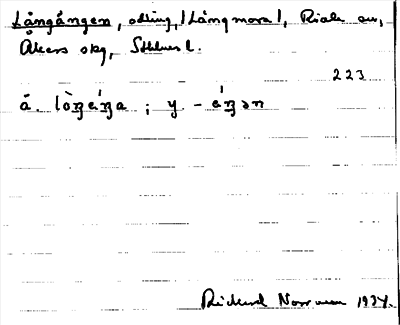 Långången, odling, (Långmora), Riala sn,
Åkers skg, Sthlms l.
223
ä. lòŋeŋa ; y. - eŋən
Richard Norrman 1934.